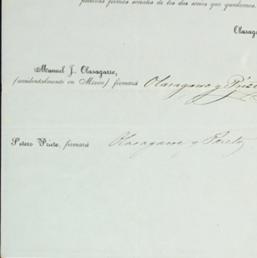 firmas
de los dos socios que quedamos.
Olasag
Manuel J. Olasagarre,
(accidentalmente en México) firmará Olasagarre y Prieto
Sotero Prieto, firmará Olasagarre y Prieto